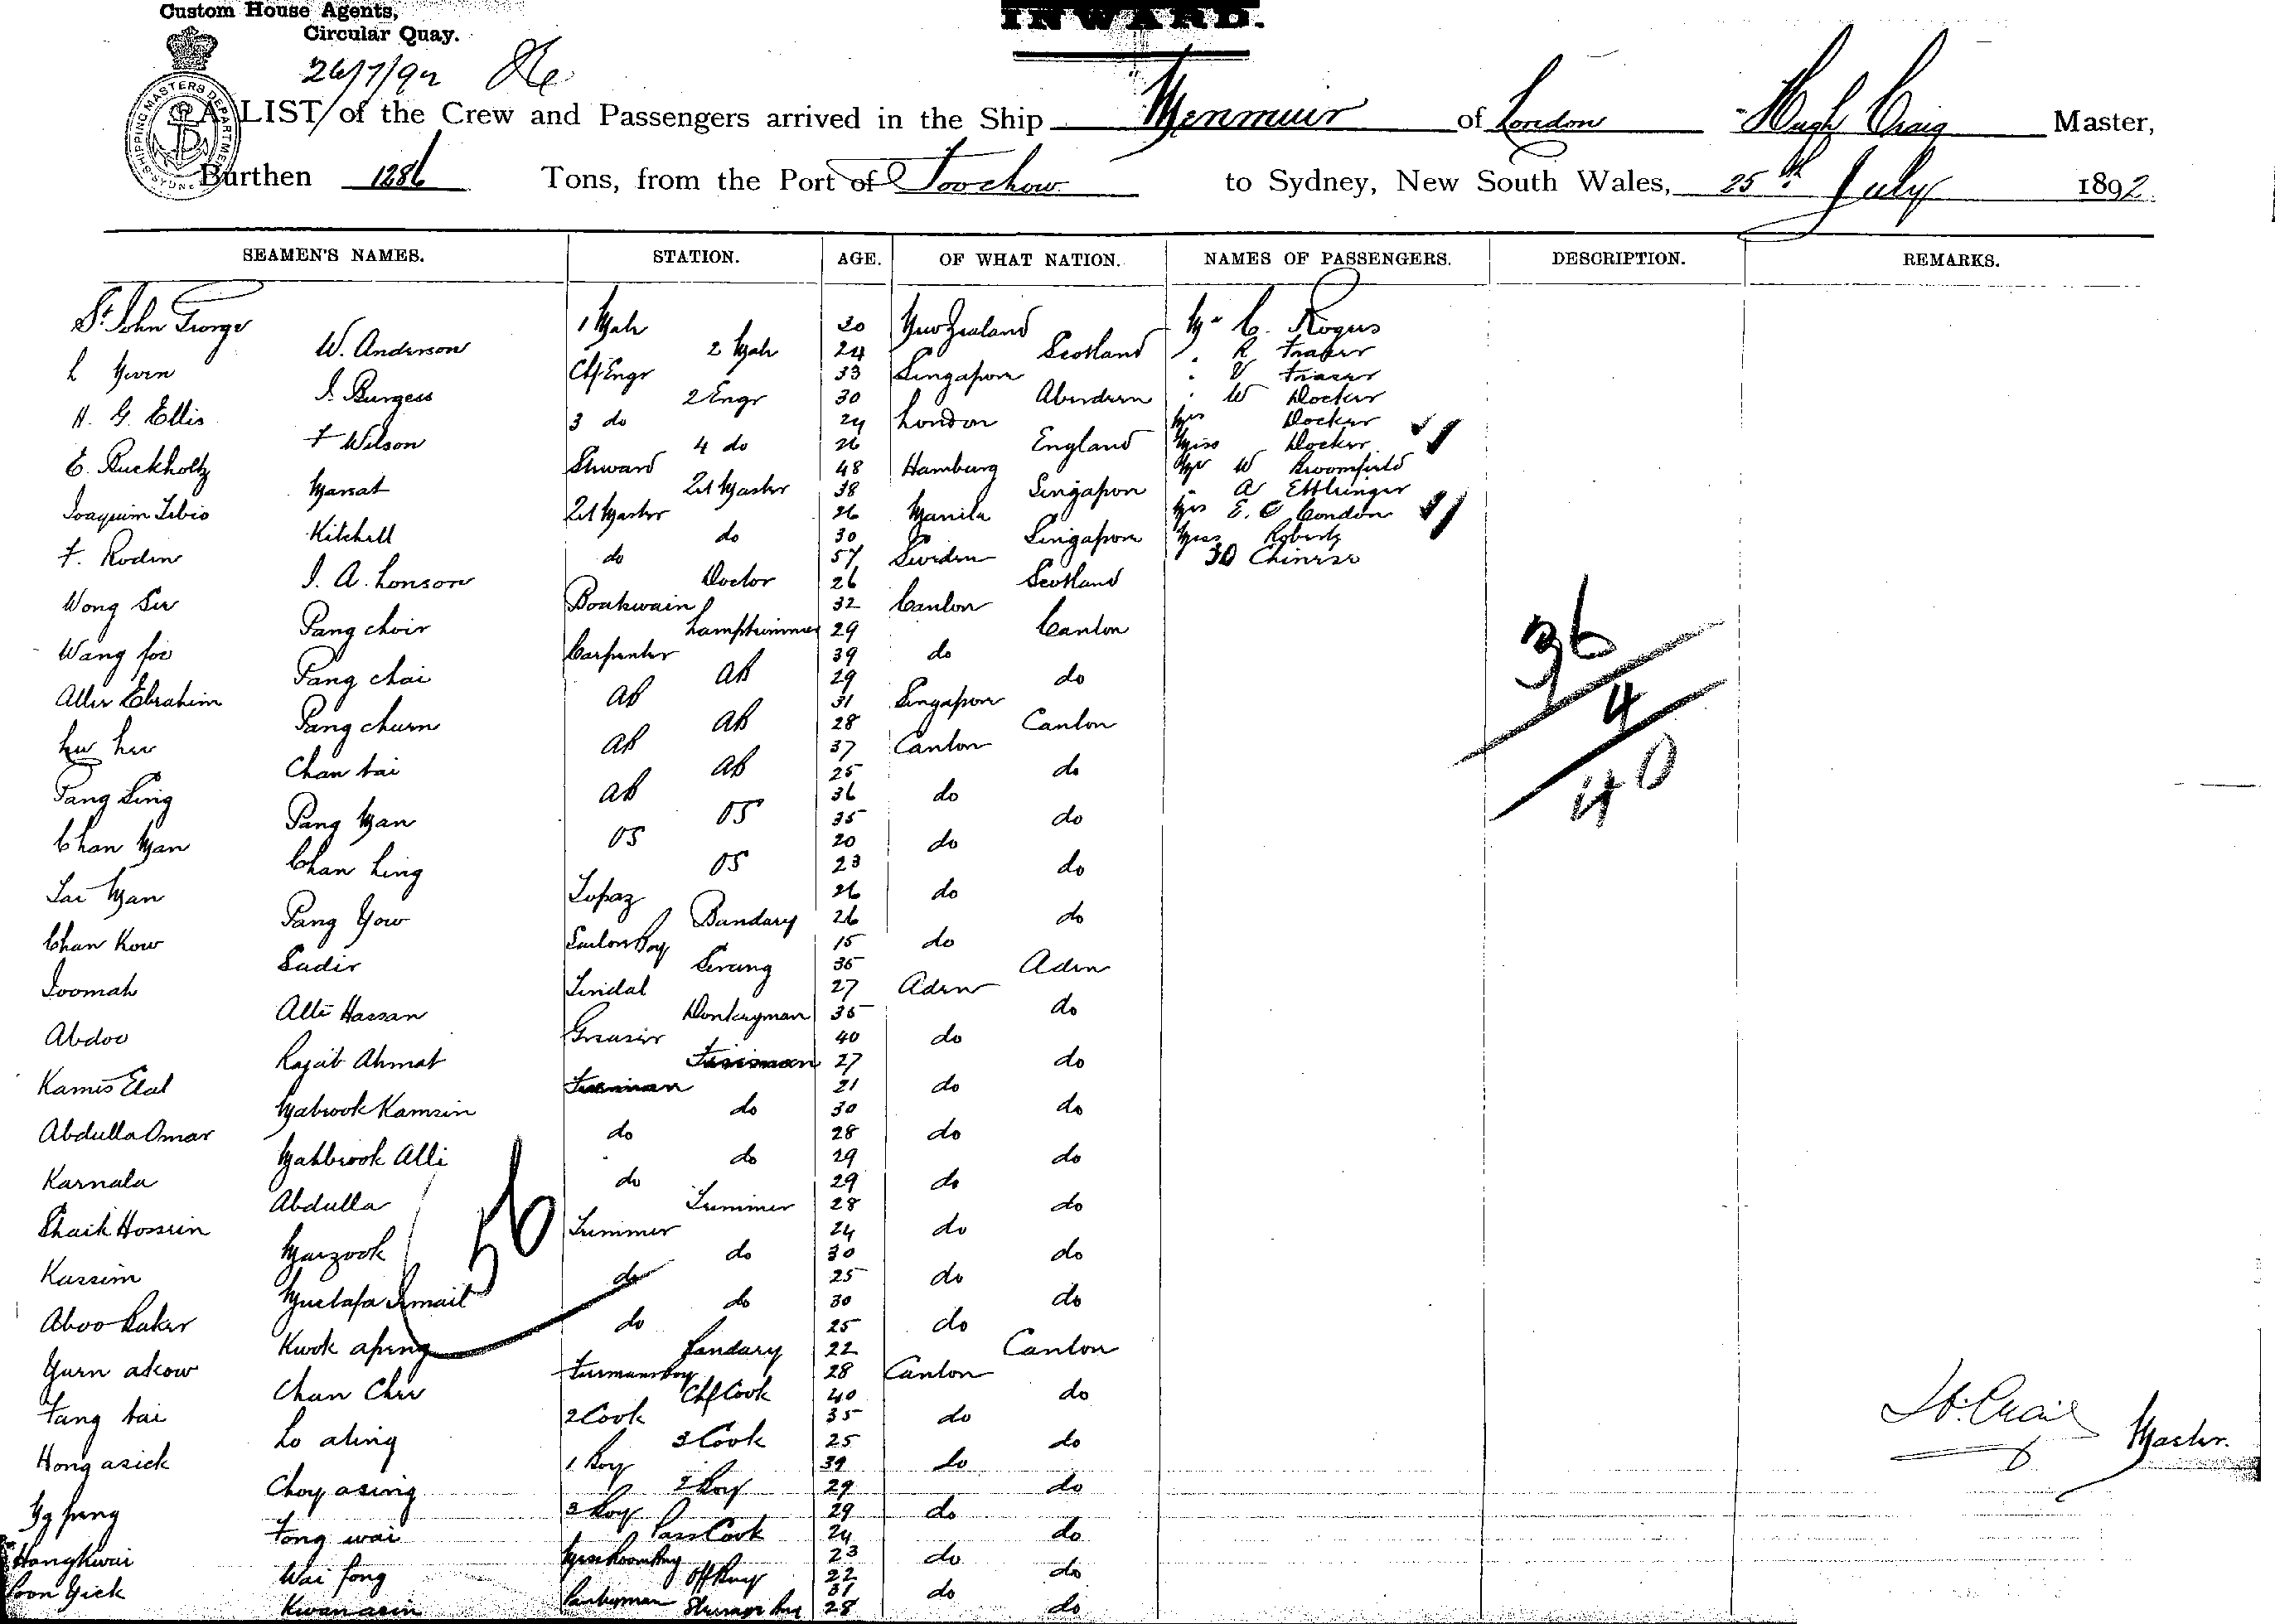 Custom House Agents,
Circular Quay.
INWARD.
26/7/92
SHIPPING MASTERS DEPARTMENT SYDNEY
A LIST of the Crew and Passengers arrived in the Ship Menmuir of London Hugh Craig Master,
Burthen 1286 Tons, from the Port of Foochow to Sydney, New South Wales, 25th July 1892
SEAMEN'S NAMES. STATION. AGE. OF WHAT NATION. NAMES OF PASSENGERS. DESCRIPTION. REMARKS.
St John George 1 Mate 30 New Zealand Mr C. Rogers
W. Anderson 2 Mate 24 Scotland " R Fraser
L Chf Engr 33 Singapore " V Fraser
J. Burgess 2 Engr 30 Aberdeen " W Docker
H. G. Ellis 3 do 24 London Mrs Docker
F Wilson 4 do 26 England Miss Docker
E. Buckholtz Steward 48 Hamburg Mr W Broomfield
Massat 2d Master 38 Singapore " A Ettlinger
Joaquim Tibio 2d Master 26 Manila Mrs E. C London
Kitchell do 30 Singapore Miss Roberts
F. Rodin do 57 Sweden 30 Chinese
J. A. Lonson Doctor 26 Scotland
Wong See Boatswain 32 Canton
Pang choir Lamptrimmer 29 Canton
Wang foo Carpenter 39 do
Pang chai AB 29 do
Aller Ebrahim AB 31 Singapore
Pang churn AB 28 Canton
AB 37 Canton
Chan tai AB 25 do
Pang Sing AB 36 do
Pang Man OS 35 do
Chan Man OS 20 do
Chan Ling OS 23 do
Lai Man Topaz 26 do
Pang Yow Bandary 26 do
Chan Kow Sailors Boy 15 do
Sadir Serang 35 Aden
Joomah Tindal 27 Aden
Alli Hassan Donkeyman 35 do
Abdoo Greaser 40 do
Rajab Ahmat Fireman 27 do
Kamis Elal Fireman 21 do
Mabrook Kamsin do 30 do
Abdulla Omar do 28 do
Mahbrook Alli do 29 do
Karnala do 29 do
Abdulla Trimmer 28 do
Shaik Hossein Trimmer 24 do
Marzook do 30 do
Kassim do 25 do
Mustafa Ismail do 30 do
Aboo Baker do 25 do
Kwok apeng Bandary 22 Canton
Yurn akow Firemans Boy 28 Canton
Chan Chee Chf Cook 40 do
Fang tai 2 Cook 35 do
Lo ating 3 Cook 25 do
Hong asick 1 Boy 39 do
Choy asing 2 Boy 29 do
Ng fung 3 Boy 29 do
Fong wai Pass Cook 24 do
Hongkwai Messroom Boy 23 do
Wai fong Off Boy 22 do
Soon Yick Pantryman 31 do
Kwan asin Steerage Boy 28 do
56
36
4
40
H. Craig Master.